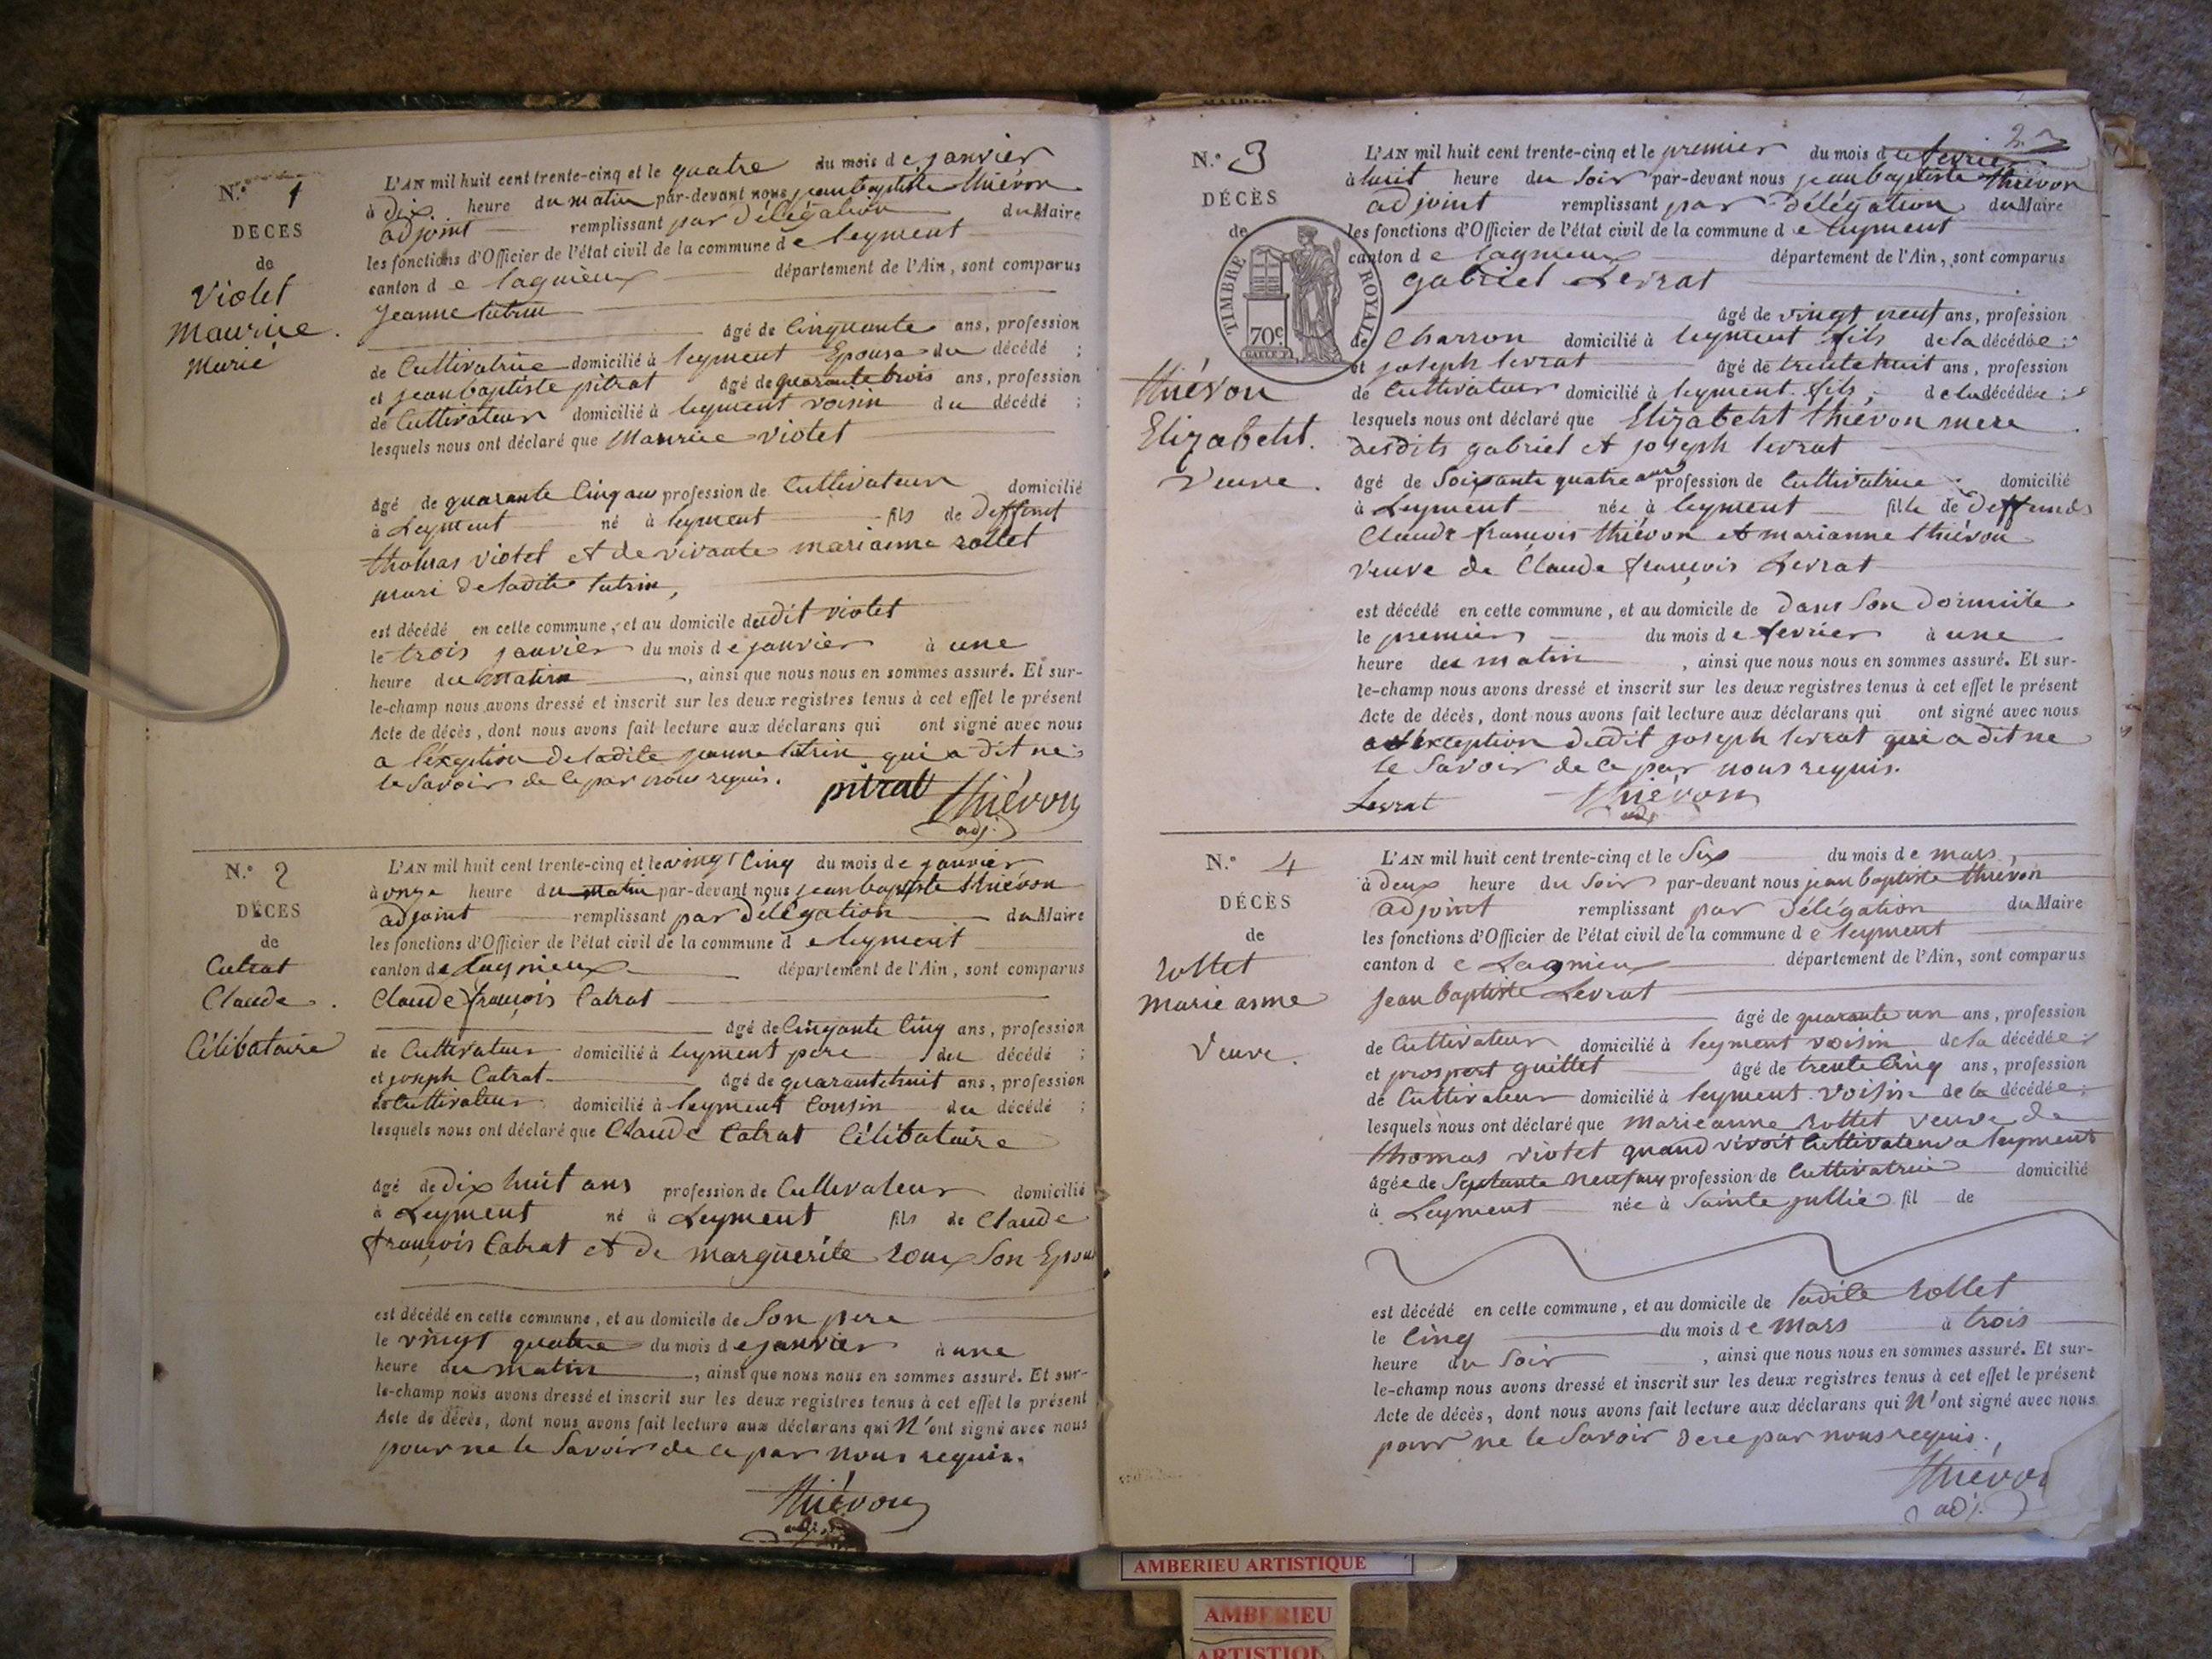 N.° 1
DÉCÈS
de
Violet
Maurice.
Marié
L'AN mil huit cent trente-cinq et le quatre du mois de janvier
à dix heure du matin par-devant nous jean baptiste thiévon
adjoint remplissant par délégation du Maire
les fonctions d'Officier de l'état civil de la commune de leyment
canton de lagnieux département de l'Ain, sont comparus
Jeanne lutrin
âgé de Cinquante ans, profession
de Cultivatrice domicilié à leyment Epouse du décédé ;
et jean baptiste pitrat âgé de quarante trois ans, profession
de Cultivateur domicilié à leyment voisin du décédé ;
lesquels nous ont déclaré que Maurice violet
âgé de quarante Cinq ans profession de Cultivateur domicilié
à Leyment né à leyment fils de deffunt
thomas violet et de vivante marianne rollet
mari de ladite lutrin,
est décédé en cette commune, et au domicile dudit violet
le trois janvier du mois de janvier à une
heure du matin, ainsi que nous nous en sommes assuré. Et sur-
le-champ nous avons dressé et inscrit sur les deux registres tenus à cet effet le présent
Acte de décès, dont nous avons fait lecture aux déclarans qui ont signé avec nous
a l'exeption de ladite jeanne lutrin qui a dit ne
le Savoir de ce par nous requis.
pitrat thiévon
adj.
N.° 2
DÉCÈS
de
Catrat
Claude.
Célibataire
L'AN mil huit cent trente-cinq et le vingt Cinq du mois de janvier
à onze heure du matin par-devant nous jean baptiste thiévon
adjoint remplissant par délégation du Maire
les fonctions d'Officier de l'état civil de la commune de leyment
canton de Lagnieux département de l'Ain, sont comparus
Claude françois Catrat
âgé de Cinqante Cinq ans, profession
de Cultivateur domicilié à leyment pere du décédé ;
et joseph Catrat âgé de quarante huit ans, profession
de Cultivateur domicilié à leyment Cousin du décédé ;
lesquels nous ont déclaré que Claude Catrat Célibataire
âgé de dix huit ans profession de Cultivateur domicilié
à Leyment né à Leyment fils de Claude
françois Catrat et de marguerite roux Son Epou
est décédé en cette commune, et au domicile de Son pere
le vingt quatre du mois de janvier à une
heure du matin, ainsi que nous nous en sommes assuré. Et sur-
le-champ nous avons dressé et inscrit sur les deux registres tenus à cet effet le présent
Acte de décès, dont nous avons fait lecture aux déclarans qui N'ont signé avec nous
pour ne le Savoir de ce par nous requis.
thiévon
N.° 3
DÉCÈS
de
TIMBRE ROYAL
70c
thiévon
Elizabeht.
Veuve.
L'AN mil huit cent trente-cinq et le premier du mois de fevrier
à huit heure du Soir par-devant nous jean baptiste thiévon
adjoint remplissant par délégation du Maire
les fonctions d'Officier de l'état civil de la commune de leyment
canton de lagnieux département de l'Ain, sont comparus
gabriel Levrat
âgé de vingt neuf ans, profession
de Charron domicilié à leyment fils de la décédée ;
et joseph levrat âgé de trente huit ans, profession
de Cultivateur domicilié à leyment fils, de la décédée ;
lesquels nous ont déclaré que Elizabeht thiévon mere
desdits gabriel et joseph levrat
âgé de Soixante quatre ans profession de Cultivatrice domicilié
à Leyment née à leyment fille de deffunds
Claude françois thiévon et marianne thiévon
veuve de Claude françois Levrat
est décédé en cette commune, et au domicile de dans Son domicile
le premier du mois de fevrier à une
heure du matin, ainsi que nous nous en sommes assuré. Et sur-
le-champ nous avons dressé et inscrit sur les deux registres tenus à cet effet le présent
Acte de décès, dont nous avons fait lecture aux déclarans qui ont signé avec nous
a l'exception dudit joseph levrat qui a dit ne
le Savoir de ce par nous requis.
Levrat thiévon
adj
N.° 4
DÉCÈS
de
rollet
marie anne
Veuve.
L'AN mil huit cent trente-cinq et le Six du mois de mars,
à deux heure du Soir par-devant nous jean baptiste thiévon
adjoint remplissant par délégation du Maire
les fonctions d'Officier de l'état civil de la commune de leyment
canton de Lagnieux département de l'Ain, sont comparus
jean baptiste Levrat
âgé de quarante un ans, profession
de Cultivateur domicilié à leyment voisin de la décédée ;
et prospert guillet âgé de trente Cinq ans, profession
de Cultivateur domicilié à leyment voisin de la décédée ;
lesquels nous ont déclaré que marieanne rollet veuve de
thomas violet quand vivoit Cultivateur a leyment
âgée de Septante neuf ans profession de Cultivatrice domicilié
à Leyment née à Sainte jullie fil de
est décédé en cette commune, et au domicile de ladite rollet
le Cinq du mois de mars à trois
heure du Soir, ainsi que nous nous en sommes assuré. Et sur-
le-champ nous avons dressé et inscrit sur les deux registres tenus à cet effet le présent
Acte de décès, dont nous avons fait lecture aux déclarans qui N'ont signé avec nous
pour ne le Savoir de ce par nous requis.
thiévon
adj.
AMBERIEU ARTISTIQUE
AMBERIEU
ARTISTIQU